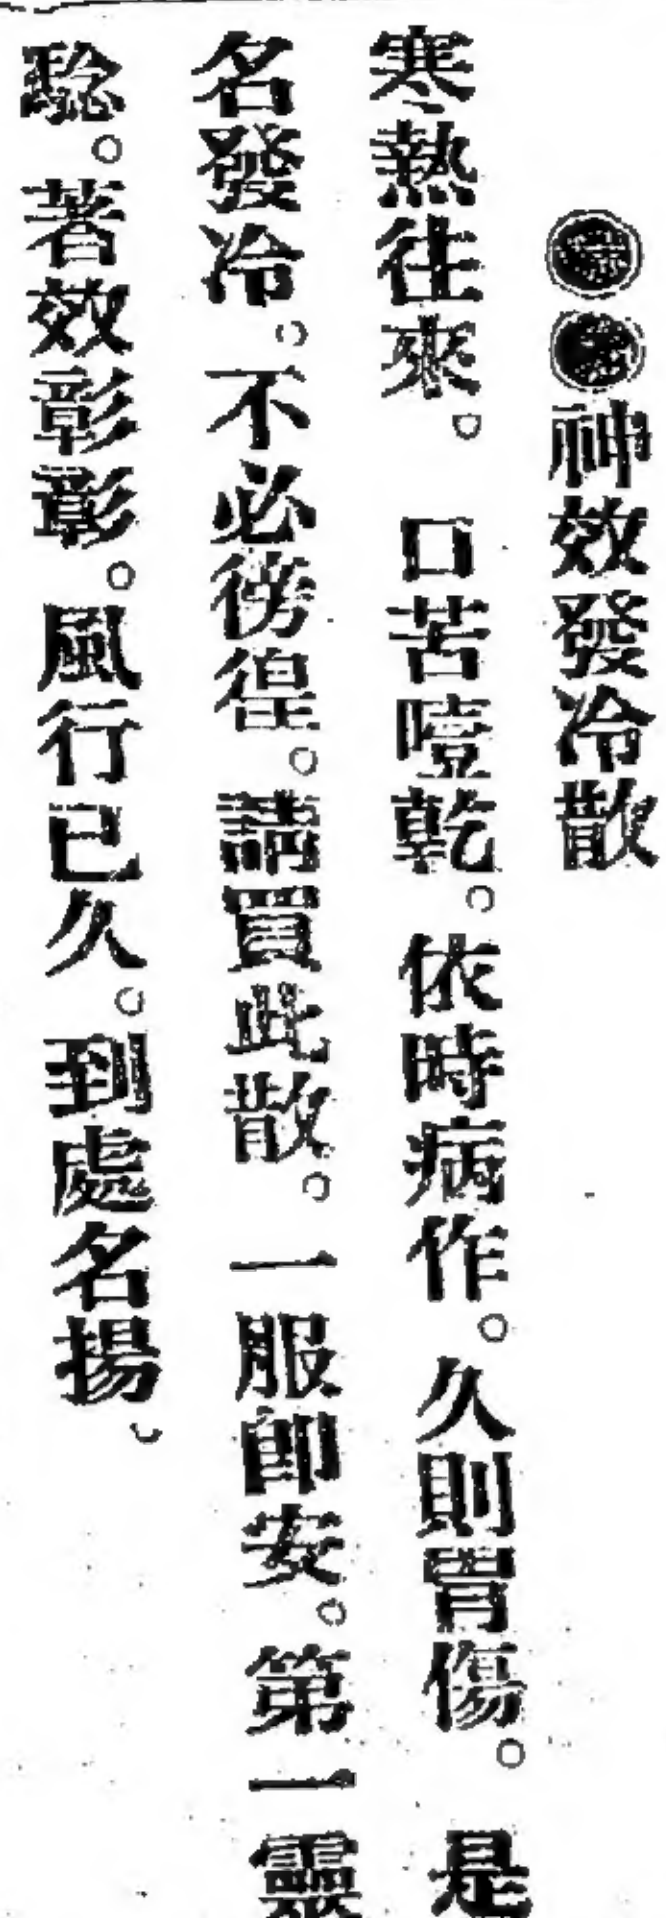 神效發冷散
寒熱往來。口苦噎乾。依時病作。久則胃傷。是
名發冷。不必徬徨。請買此散。一服即安。第一靈
驗。著效彰彰。風行已久。到處名揚。